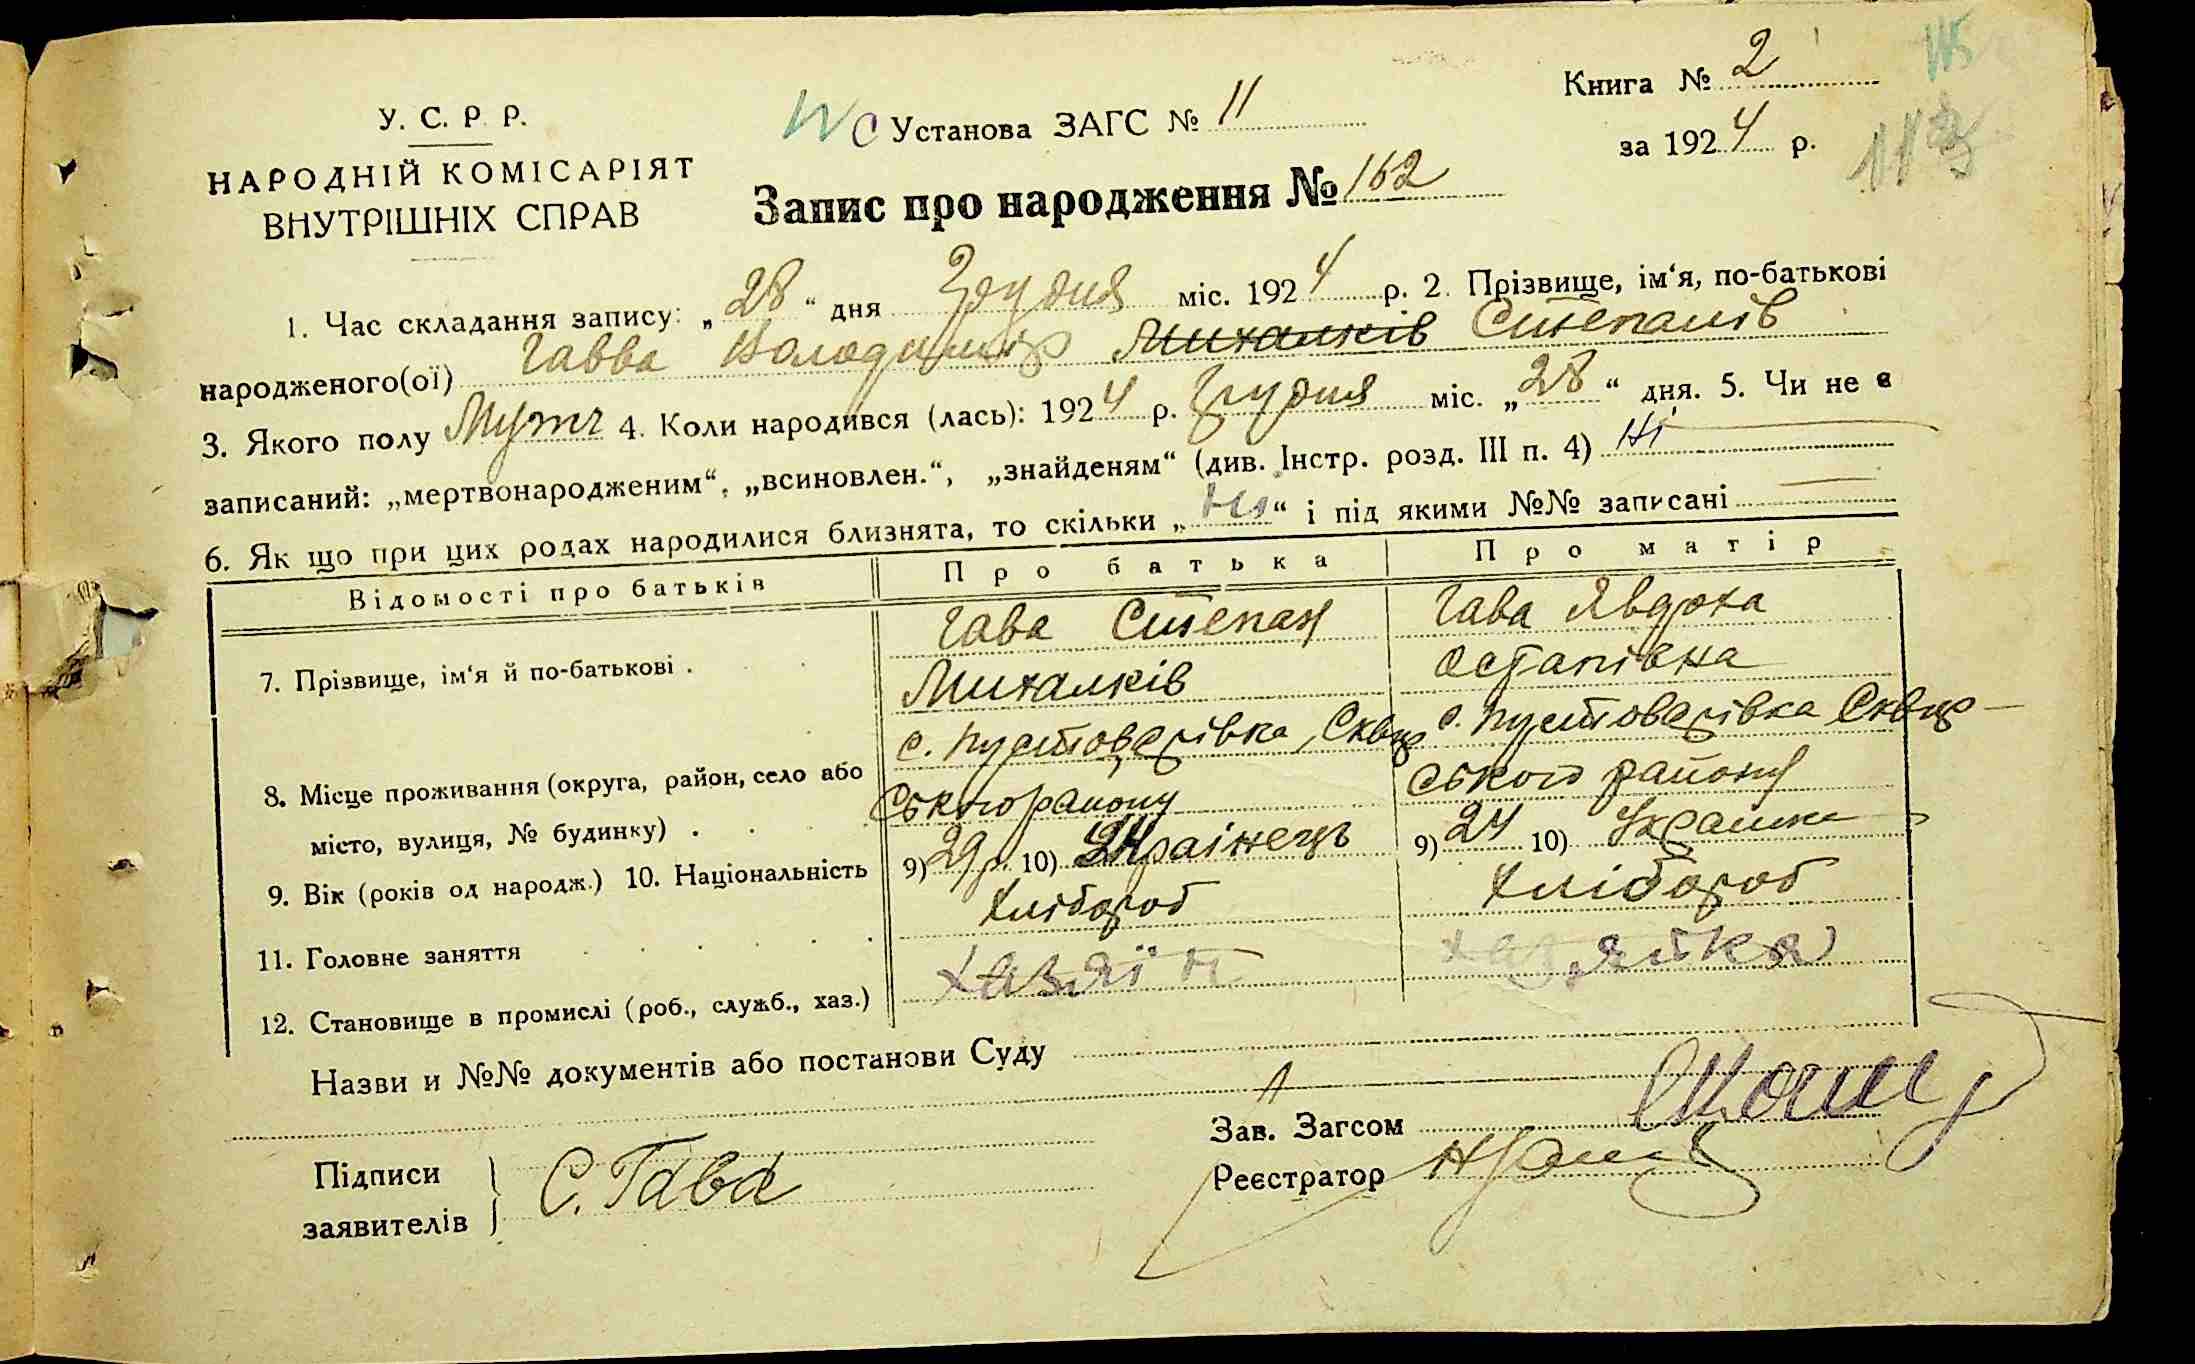 Книга № 2
115
У. С. Р. Р.
НАРОДНІЙ КОМІСАРІЯТ
ВНУТРІШНІХ СПРАВ
Установа ЗАГС № 11
за 1924 р.
Запис про народження № 162
1. Час складання запису: „28“ дня Грудня міс. 1924 р. 2. Прізвище, ім‘я, по-батькові
народженого(ої) Гавва Володимір Михалків Степанів
3. Якого полу Мужч 4. Коли народився (лась): 1924 р. Грудня міс. „28“ дня. 5. Чи не є
записаний: „мертвонародженим“, „всиновлен.“, „знайденям“ (див. Інстр. розд. III п. 4) Ні
6. Як що при цих родах народилися близнята, то скільки „Ні“ і під якими №№ записані —
Відомості про батьків Про батька Про матір
7. Прізвище, ім‘я й по-батькові . Гава Степан Гава Явдоха
Михалків Остапівна
8. Місце проживання (округа, район, село або с. Пустоварівка, Сквир с. Пустоварівка Сквир-
місто, вулиця, № будинку) . ського району ського району
9. Вік (років од народж.) 10. Національність 9) 29 р. 10) Українець 9) 24 10) Українка
11. Головне заняття Хлібороб Хлібороб
12. Становище в промислі (роб., служб., хаз.) хазяїн хазяйка
Назви и №№ документів або постанови Суду
Зав. Загсом
Підписи
заявителів } С. Гава
Реєстратор